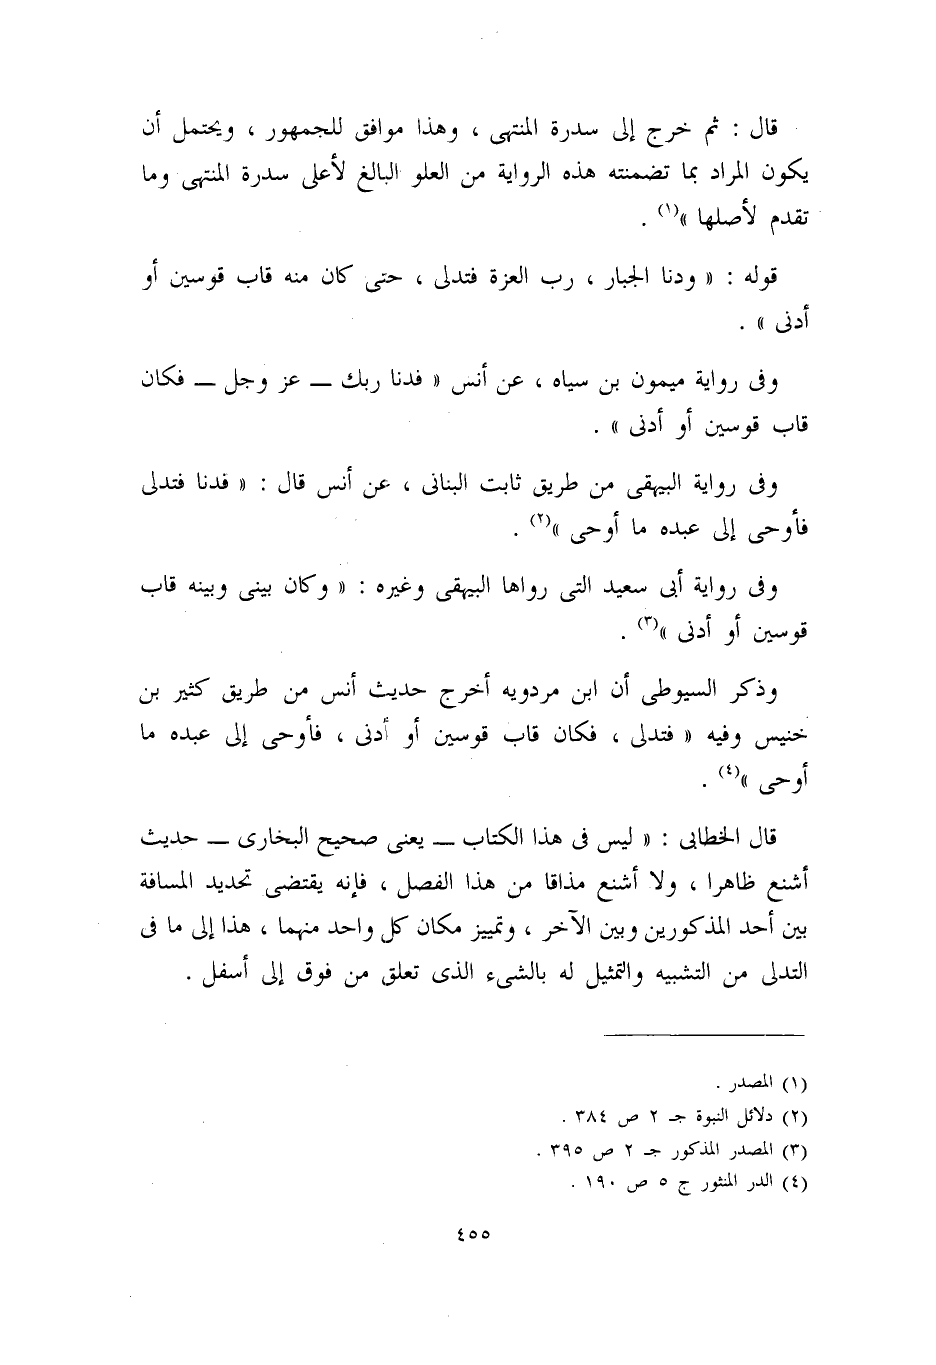 قال : ثم خرج إلى سدرة المنتهى ، وهذا موافق للجمهور ، ويحتمل أن
يكون المراد بما تضمنته هذه الرواية من العلو البالغ لأعلى سدرة المنتهى وما
تقدم لأصلها »(١) .
قوله : « ودنا الجبار ، رب العزة فتدلى ، حتى كان منه قاب قوسين أو
أدنى » .
وفى رواية ميمون بن سياه ، عن أنس « فدنا ربك — عز وجل — فكان
قاب قوسين أو أدنى » .
وفى رواية البيهقى من طريق ثابت البنانى ، عن أنس قال : « فدنا فتدلى
فأوحى إلى عبده ما أوحى »(٢) .
وفى رواية أبى سعيد التى رواها البيهقى وغيره : « وكان بينى وبينه قاب
قوسين أو أدنى »(٣) .
وذكر السيوطى أن ابن مردويه أخرج حديث أنس من طريق كثير بن
خنيس وفيه « فتدلى ، فكان قاب قوسين أو أدنى ، فأوحى إلى عبده ما
أوحى »(٤) .
قال الخطابى : « ليس فى هذا الكتاب — يعنى صحيح البخارى — حديث
أشنع ظاهرا ، ولا أشنع مذاقا من هذا الفصل ، فإنه يقتضى تحديد المسافة
بين أحد المذكورين وبين الآخر ، وتمييز مكان كل واحد منهما ، هذا إلى ما فى
التدلى من التشبيه والتمثيل له بالشىء الذى تعلق من فوق إلى أسفل .
(١) المصدر .
(٢) دلائل النبوة جـ ٢ ص ٣٨٤ .
(٣) المصدر المذكور جـ ٢ ص ٣٩٥ .
(٤) الدر المنثور ج ٥ ص ١٩٠ .
٤٥٥